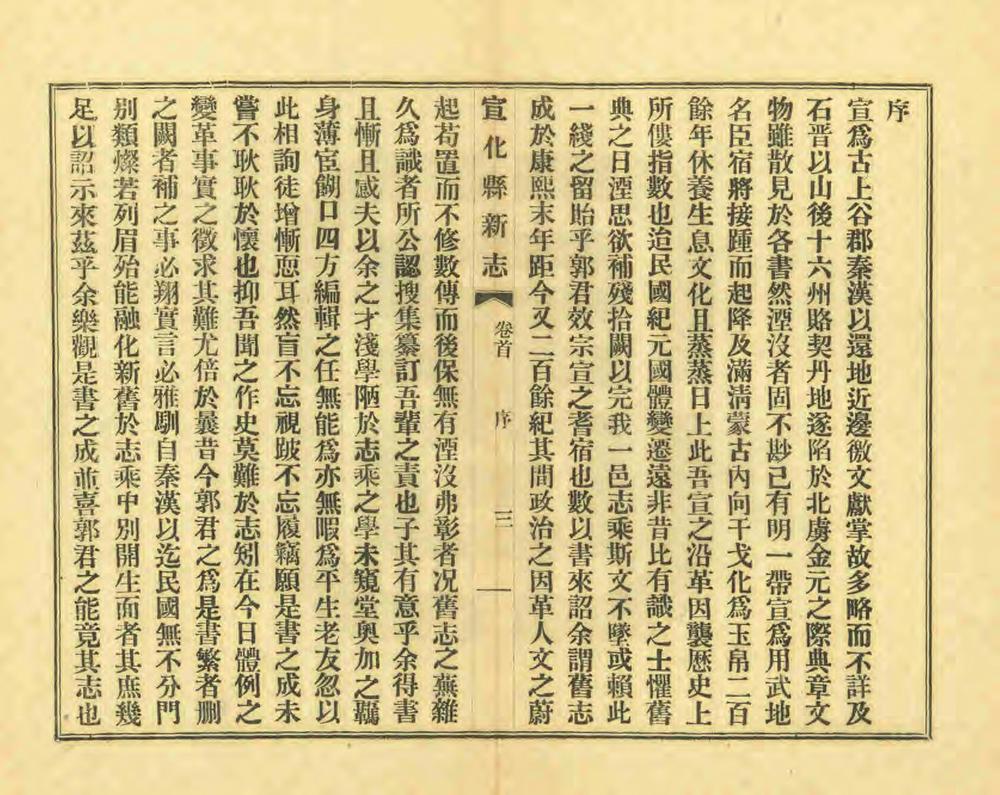 序
宣爲古上谷郡秦漢以還地近邊徼文獻掌故多略而不詳及
石晉以山後十六州賂契丹地遂陷於北虜金元之際典章文
物雖散見於各書然湮沒者固不尠已有明一帶宣爲用武地
名臣宿將接踵而起降及滿淸蒙古內向干戈化爲玉帛二百
餘年休養生息文化且蒸蒸日上此吾宣之沿革因襲歷史上
所僂指數也迨民國紀元國體變遷遠非昔比有識之士懼舊
典之日湮思欲補殘拾闕以完我一邑志乘斯文不墜或賴此
一綫之留貽乎郭君效宗宣之耆宿也數以書來詔余謂舊志
成於康熙末年距今又二百餘紀其間政治之因革人文之蔚
宣化縣新志 卷首 序 三
起苟置而不修數傳而後保無有湮沒弗彰者况舊志之蕪雜
久爲識者所公認搜集纂訂吾輩之責也子其有意乎余得書
且慚且感夫以余之才淺學陋於志乘之學未窺堂奧加之羈
身薄宦餬口四方編輯之任無能爲亦無暇爲平生老友忽以
此相詢徒增慚恧耳然盲不忘視跛不忘履竊願是書之成未
嘗不耿耿於懷也抑吾聞之作史莫難於志矧在今日體例之
變革事實之徵求其難尤倍於曩昔今郭君之爲是書繁者删
之闕者補之事必翔實言必雅馴自秦漢以迄民國無不分門
別類燦若列眉殆能融化新舊於志乘中別開生面者其庶幾
足以詔示來茲乎余樂觀是書之成並喜郭君之能竟其志也